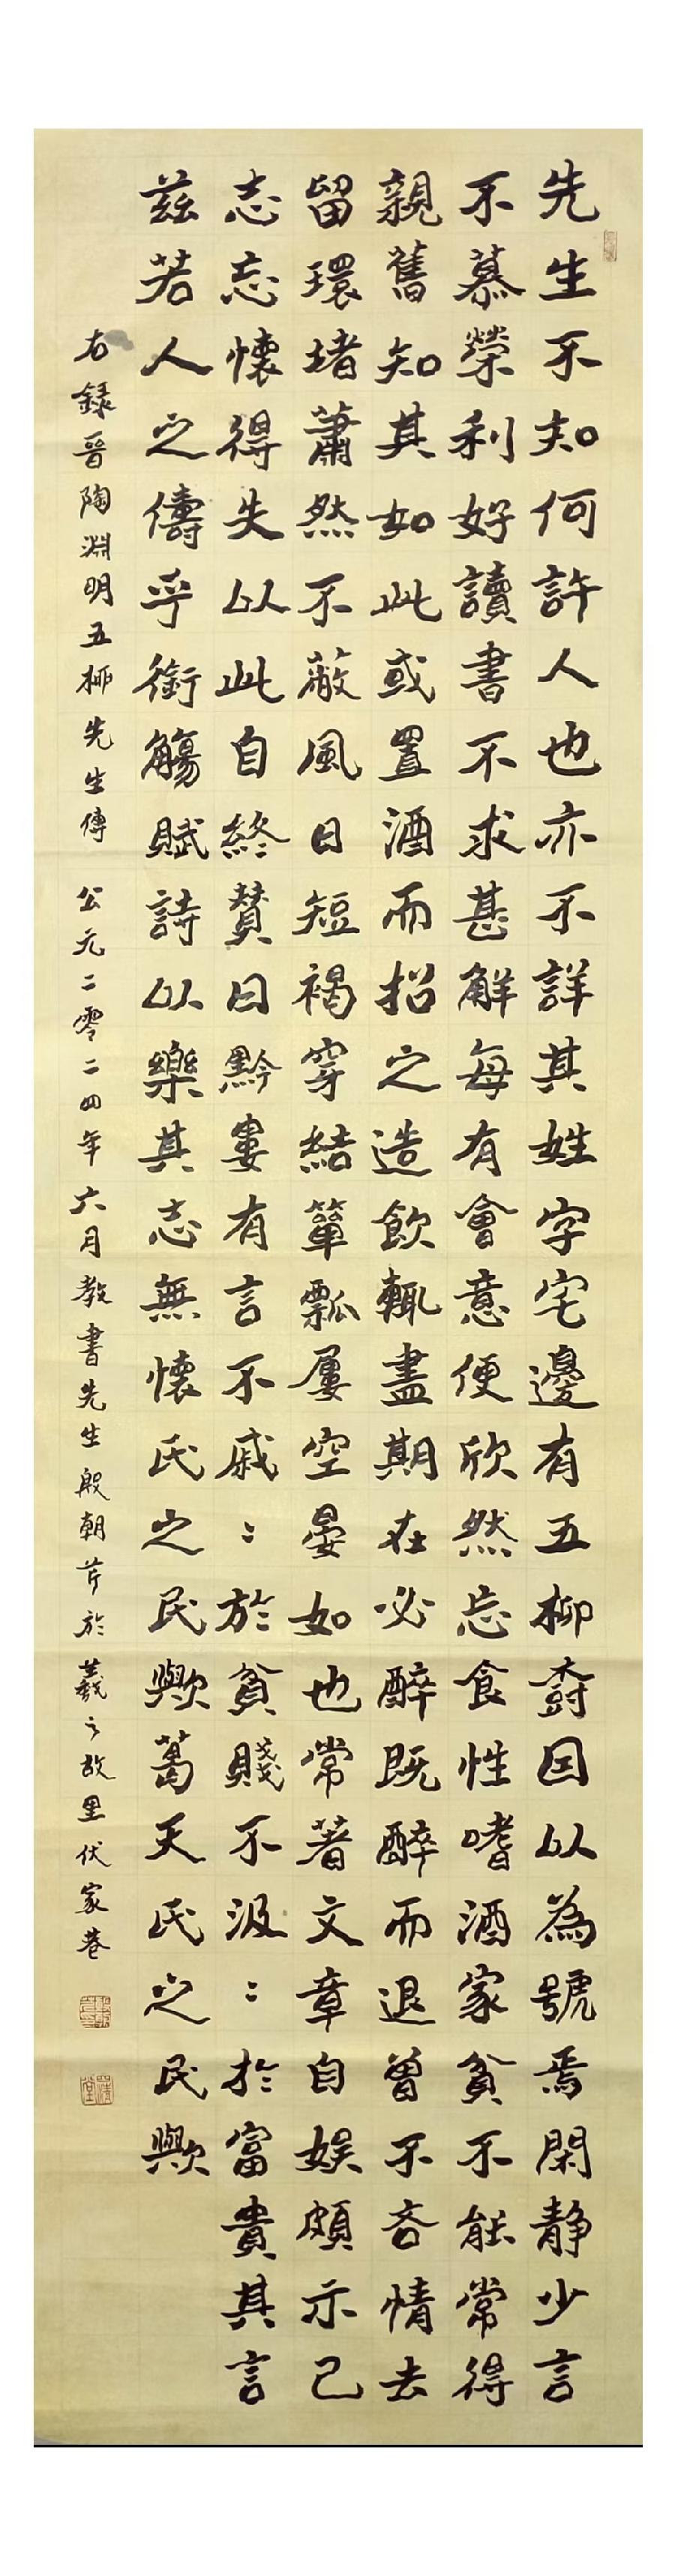 先生不知何許人也亦不詳其姓字宅邊有五柳樹因以為號焉閑靜少言
不慕榮利好讀書不求甚解每有會意便欣然忘食性嗜酒家貧不能常得
親舊知其如此或置酒而招之造飲輒盡期在必醉既醉而退曾不吝情去
留環堵蕭然不蔽風日短褐穿結簞瓢屢空晏如也常著文章自娛頗示己
志忘懷得失以此自終贊曰黔婁有言不戚〻於貧賤不汲〻於富貴其言
茲若人之儔乎銜觴賦詩以樂其志無懷氏之民歟葛天氏之民歟
右録晉陶淵明五柳先生傳 公元二零二四年六月教書先生殷朝芹於羲之故里伏家巷